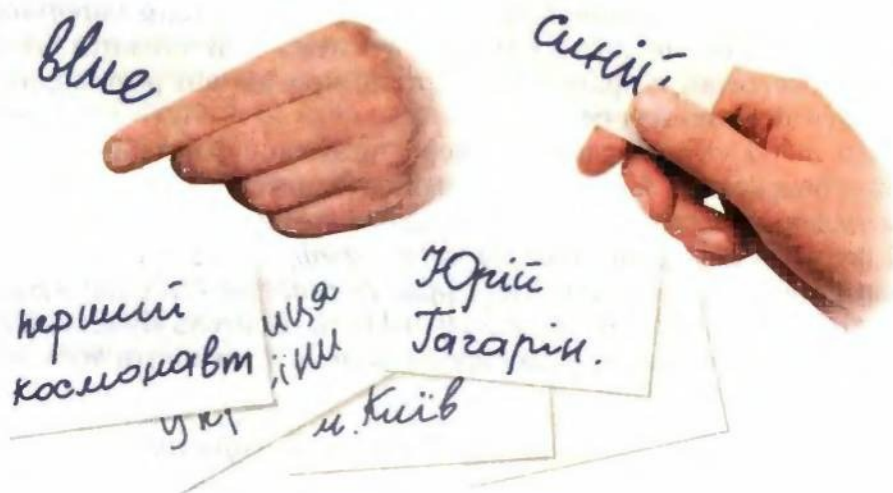 blue
синій
перший
космонавт
Юрій
Гагарін.
м. Київ